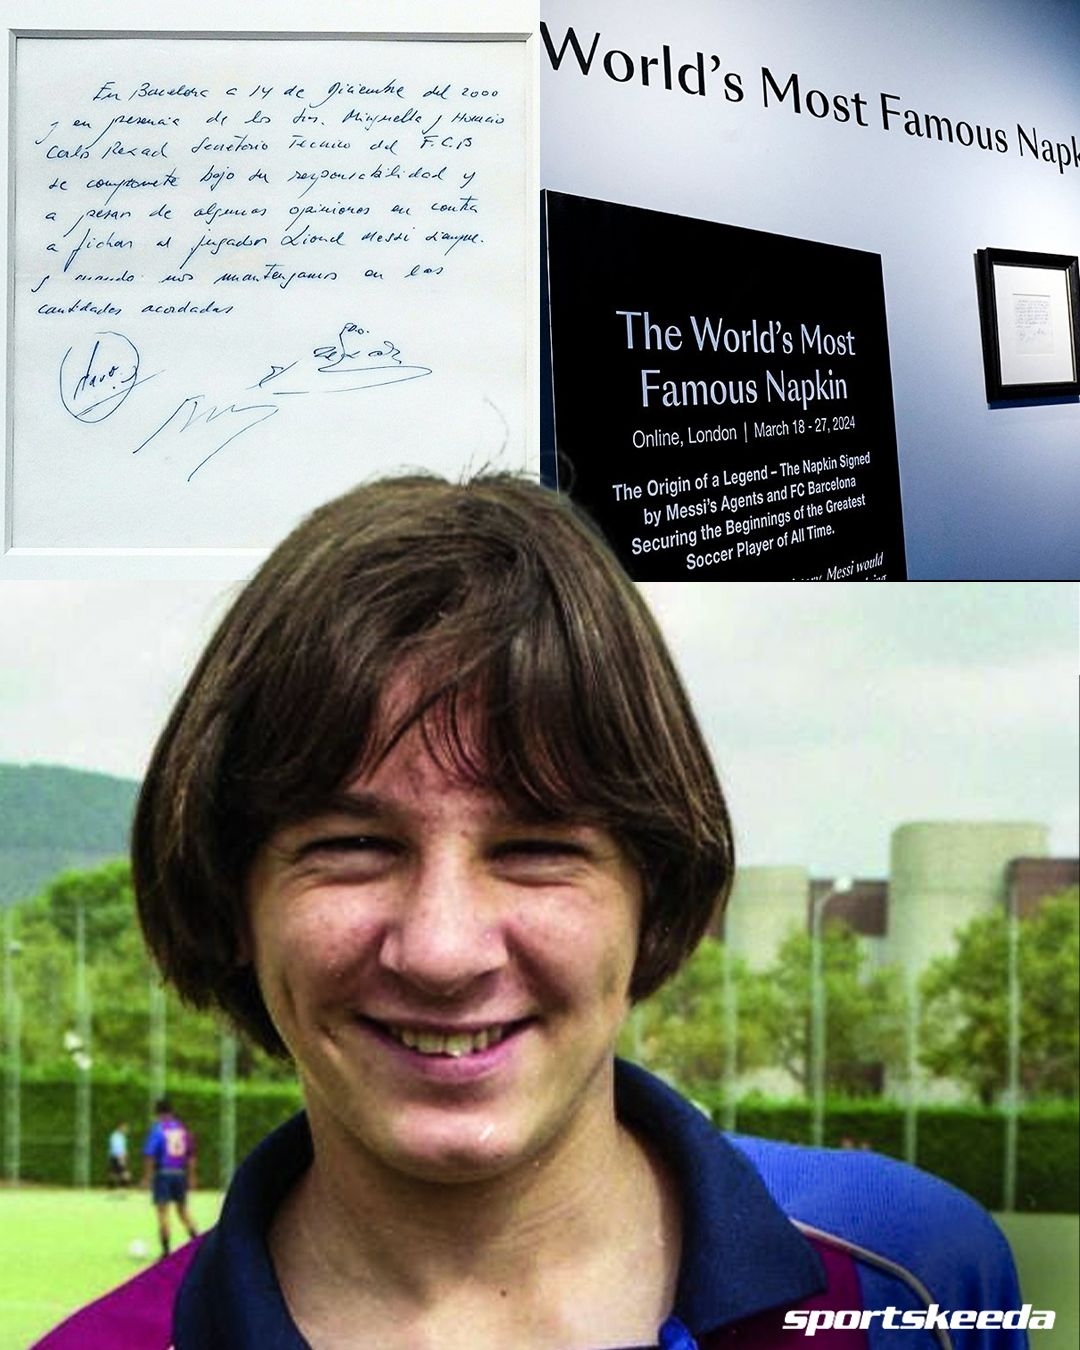 En Barcelona a 14 de Diciembre del 2000
y en presencia de los Srs. Minguella y Horacio
Carlo Rexad Secretario Técnico del F.C.B
se compromete bajo su responsabilidad y
a pesar de algunas opiniones en contra
a fichar al jugador Lionel Messi siempre.
y cuando nos mantengamos en las
cantidades acordadas
World's Most Famous Napk
The World's Most
Famous Napkin
Online, London | March 18 - 27, 2024
The Origin of a Legend – The Napkin Signed
by Messi's Agents and FC Barcelona
Securing the Beginnings of the Greatest
Soccer Player of All Time.
Messi would
sportskeeda